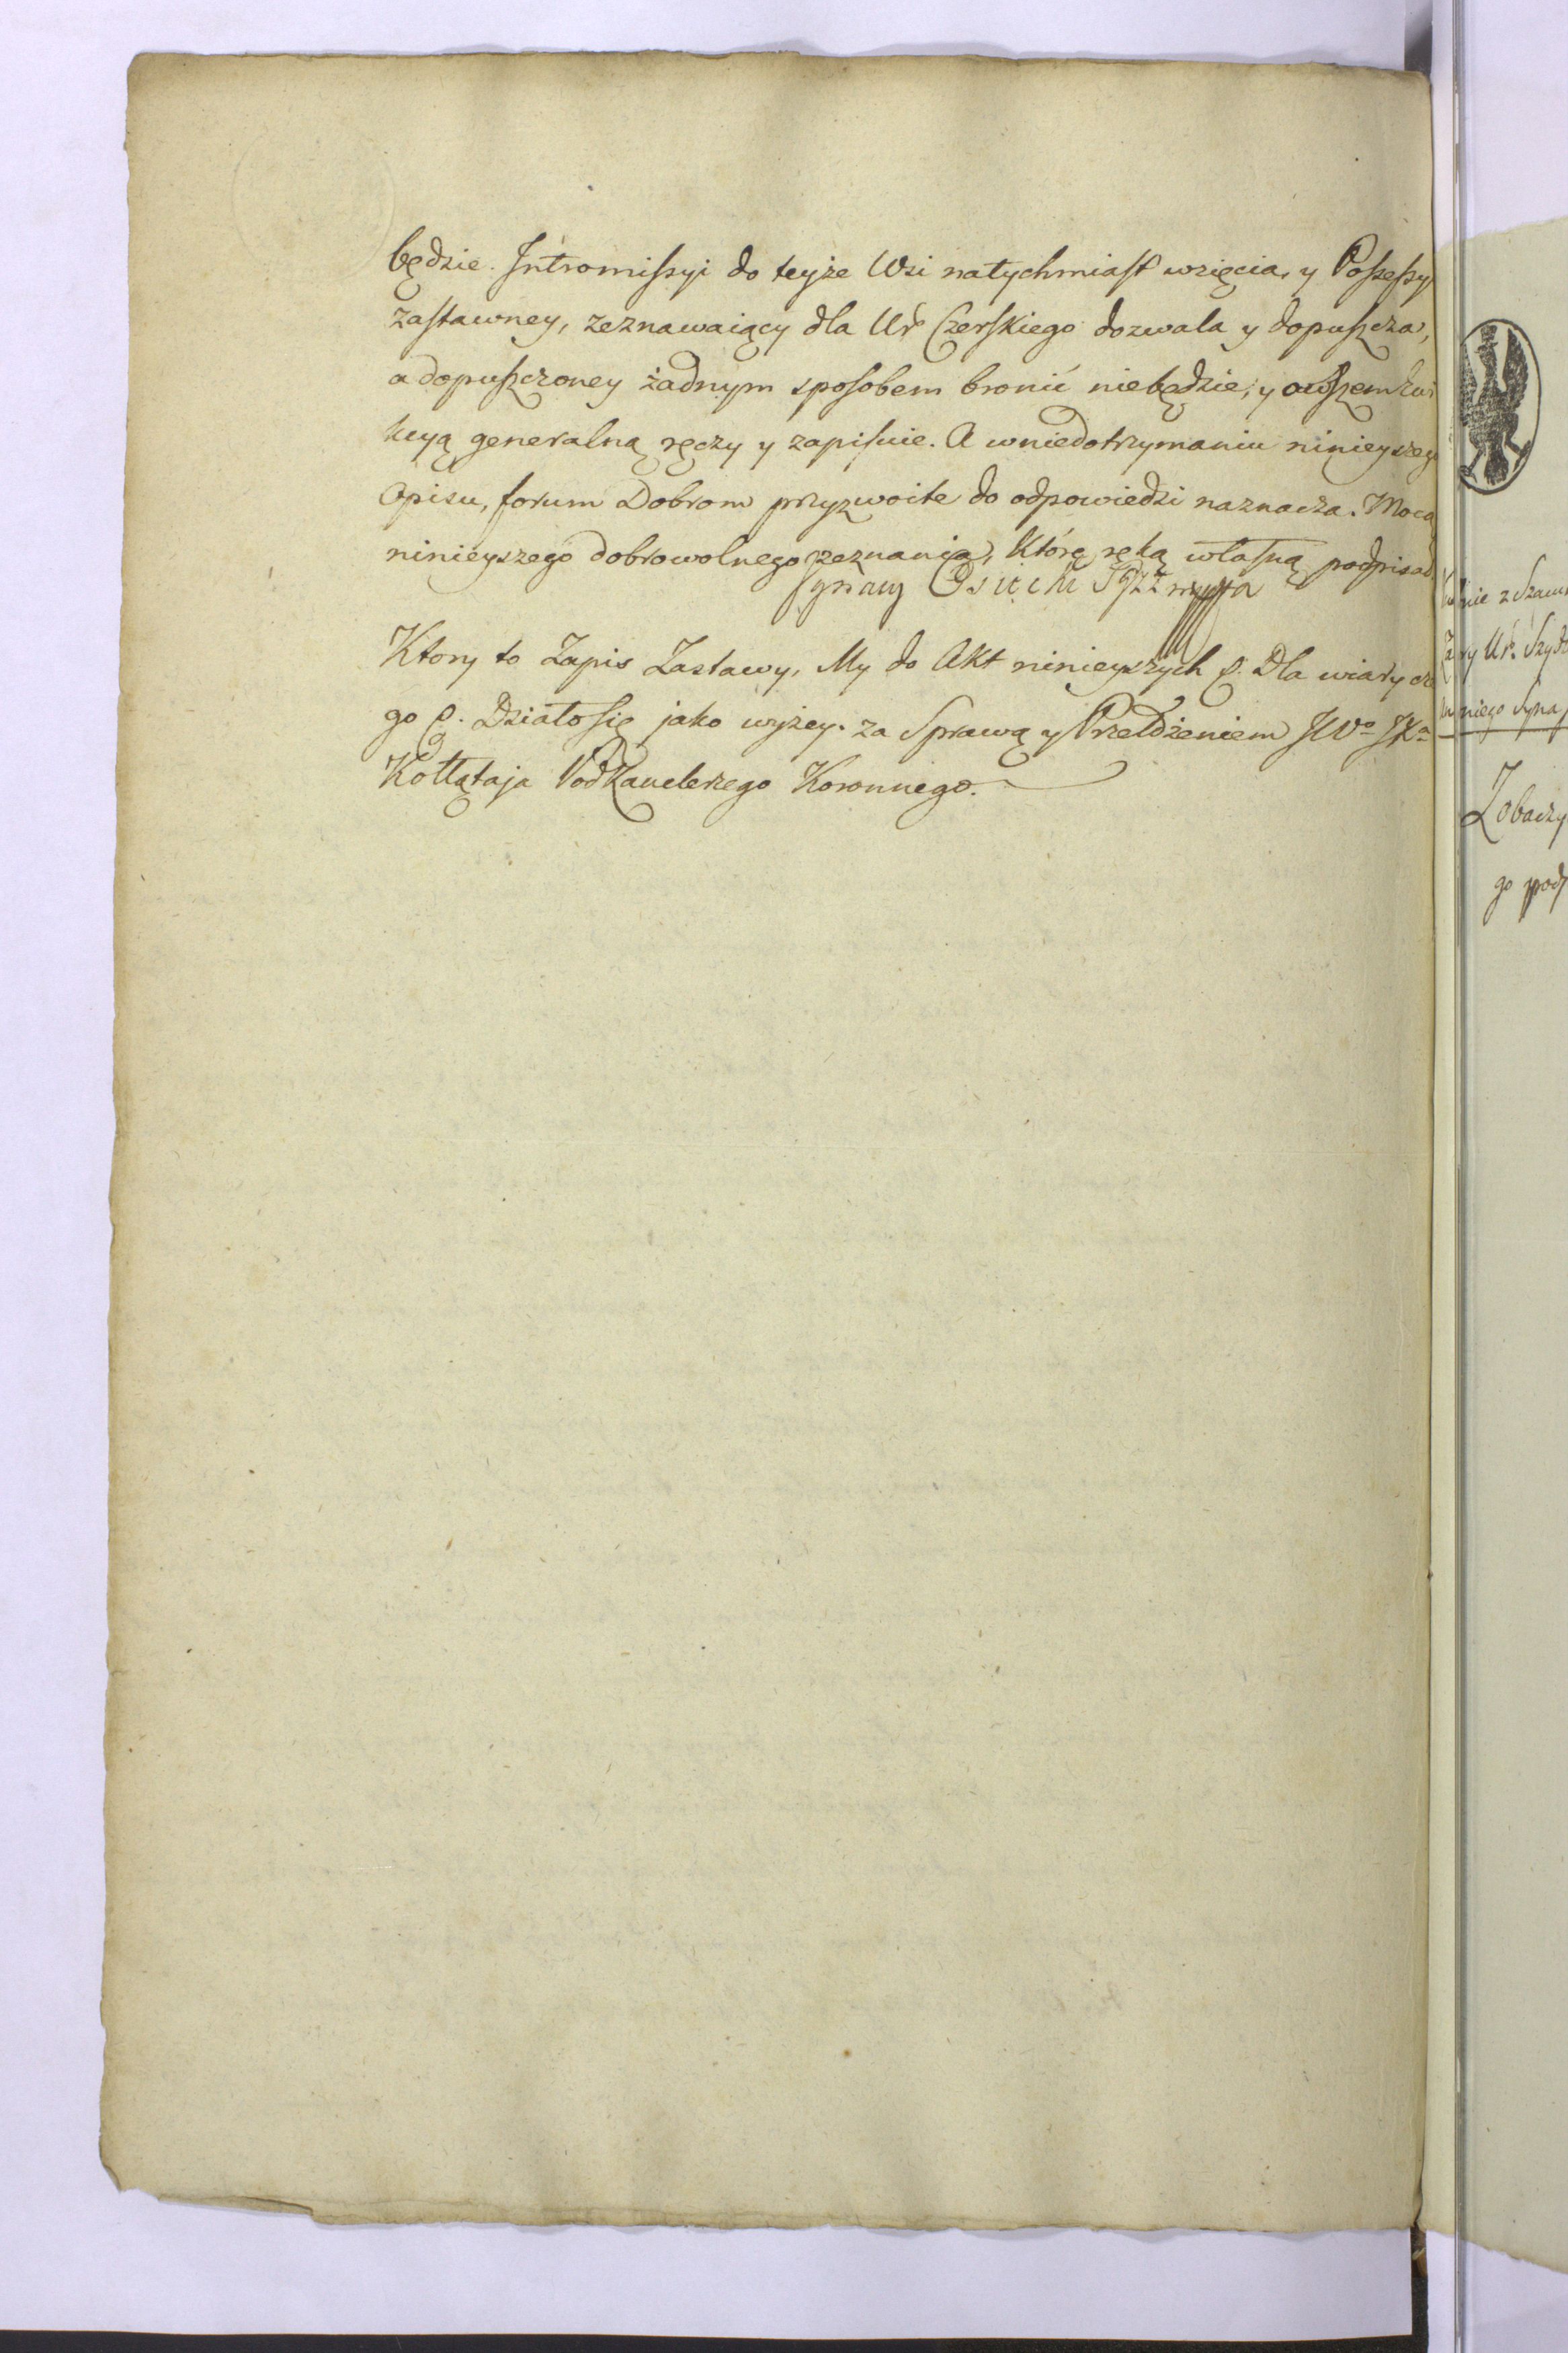 będzie. Intromissyi do teyże Wsi natychmiast wzięcia, y Possessy
zastawney, zeznawaiący dla Ur° Czerskiego dozwala y dopuszcza,
a dopuszczoney żadnym sposobem bronić niebędzie, y owszem Ewi
kcyą generalną ręczy y zapisuie. A wniedotrzymaniu ninieyszeg
Opisu, forum Dobrom przyzwoite do odpowiedzi naznacza. Mocą
ninieyszego dobrowolnego zeznania, które ręką własną podpisał
Ignacy
Ktory to Zapis Zastawy, My do Akt ninieyszych p. Dla wiary cze
go p. Działosię jako wyżey. za Sprawą y Przełożeniem JWo JXa
Kołłątaja PodKanclerzego Koronnego.
nie z Szam
ry Ur. Szydł
niego Syna
Zobaczy
go pod